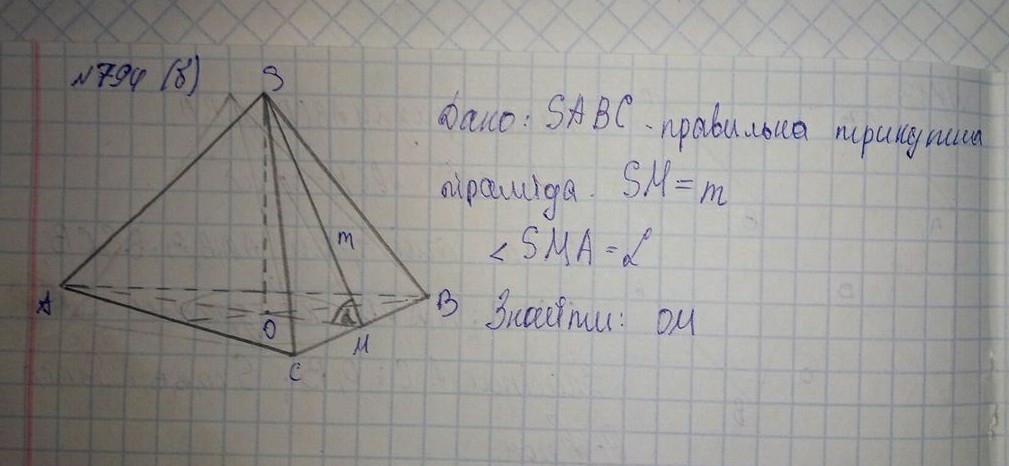 №794 (б)
S
Дано: SABC - правильна трикутна
піраміда. SM = m
m
< SMA = α
A
B
O
α
M
C
Знайти: OM